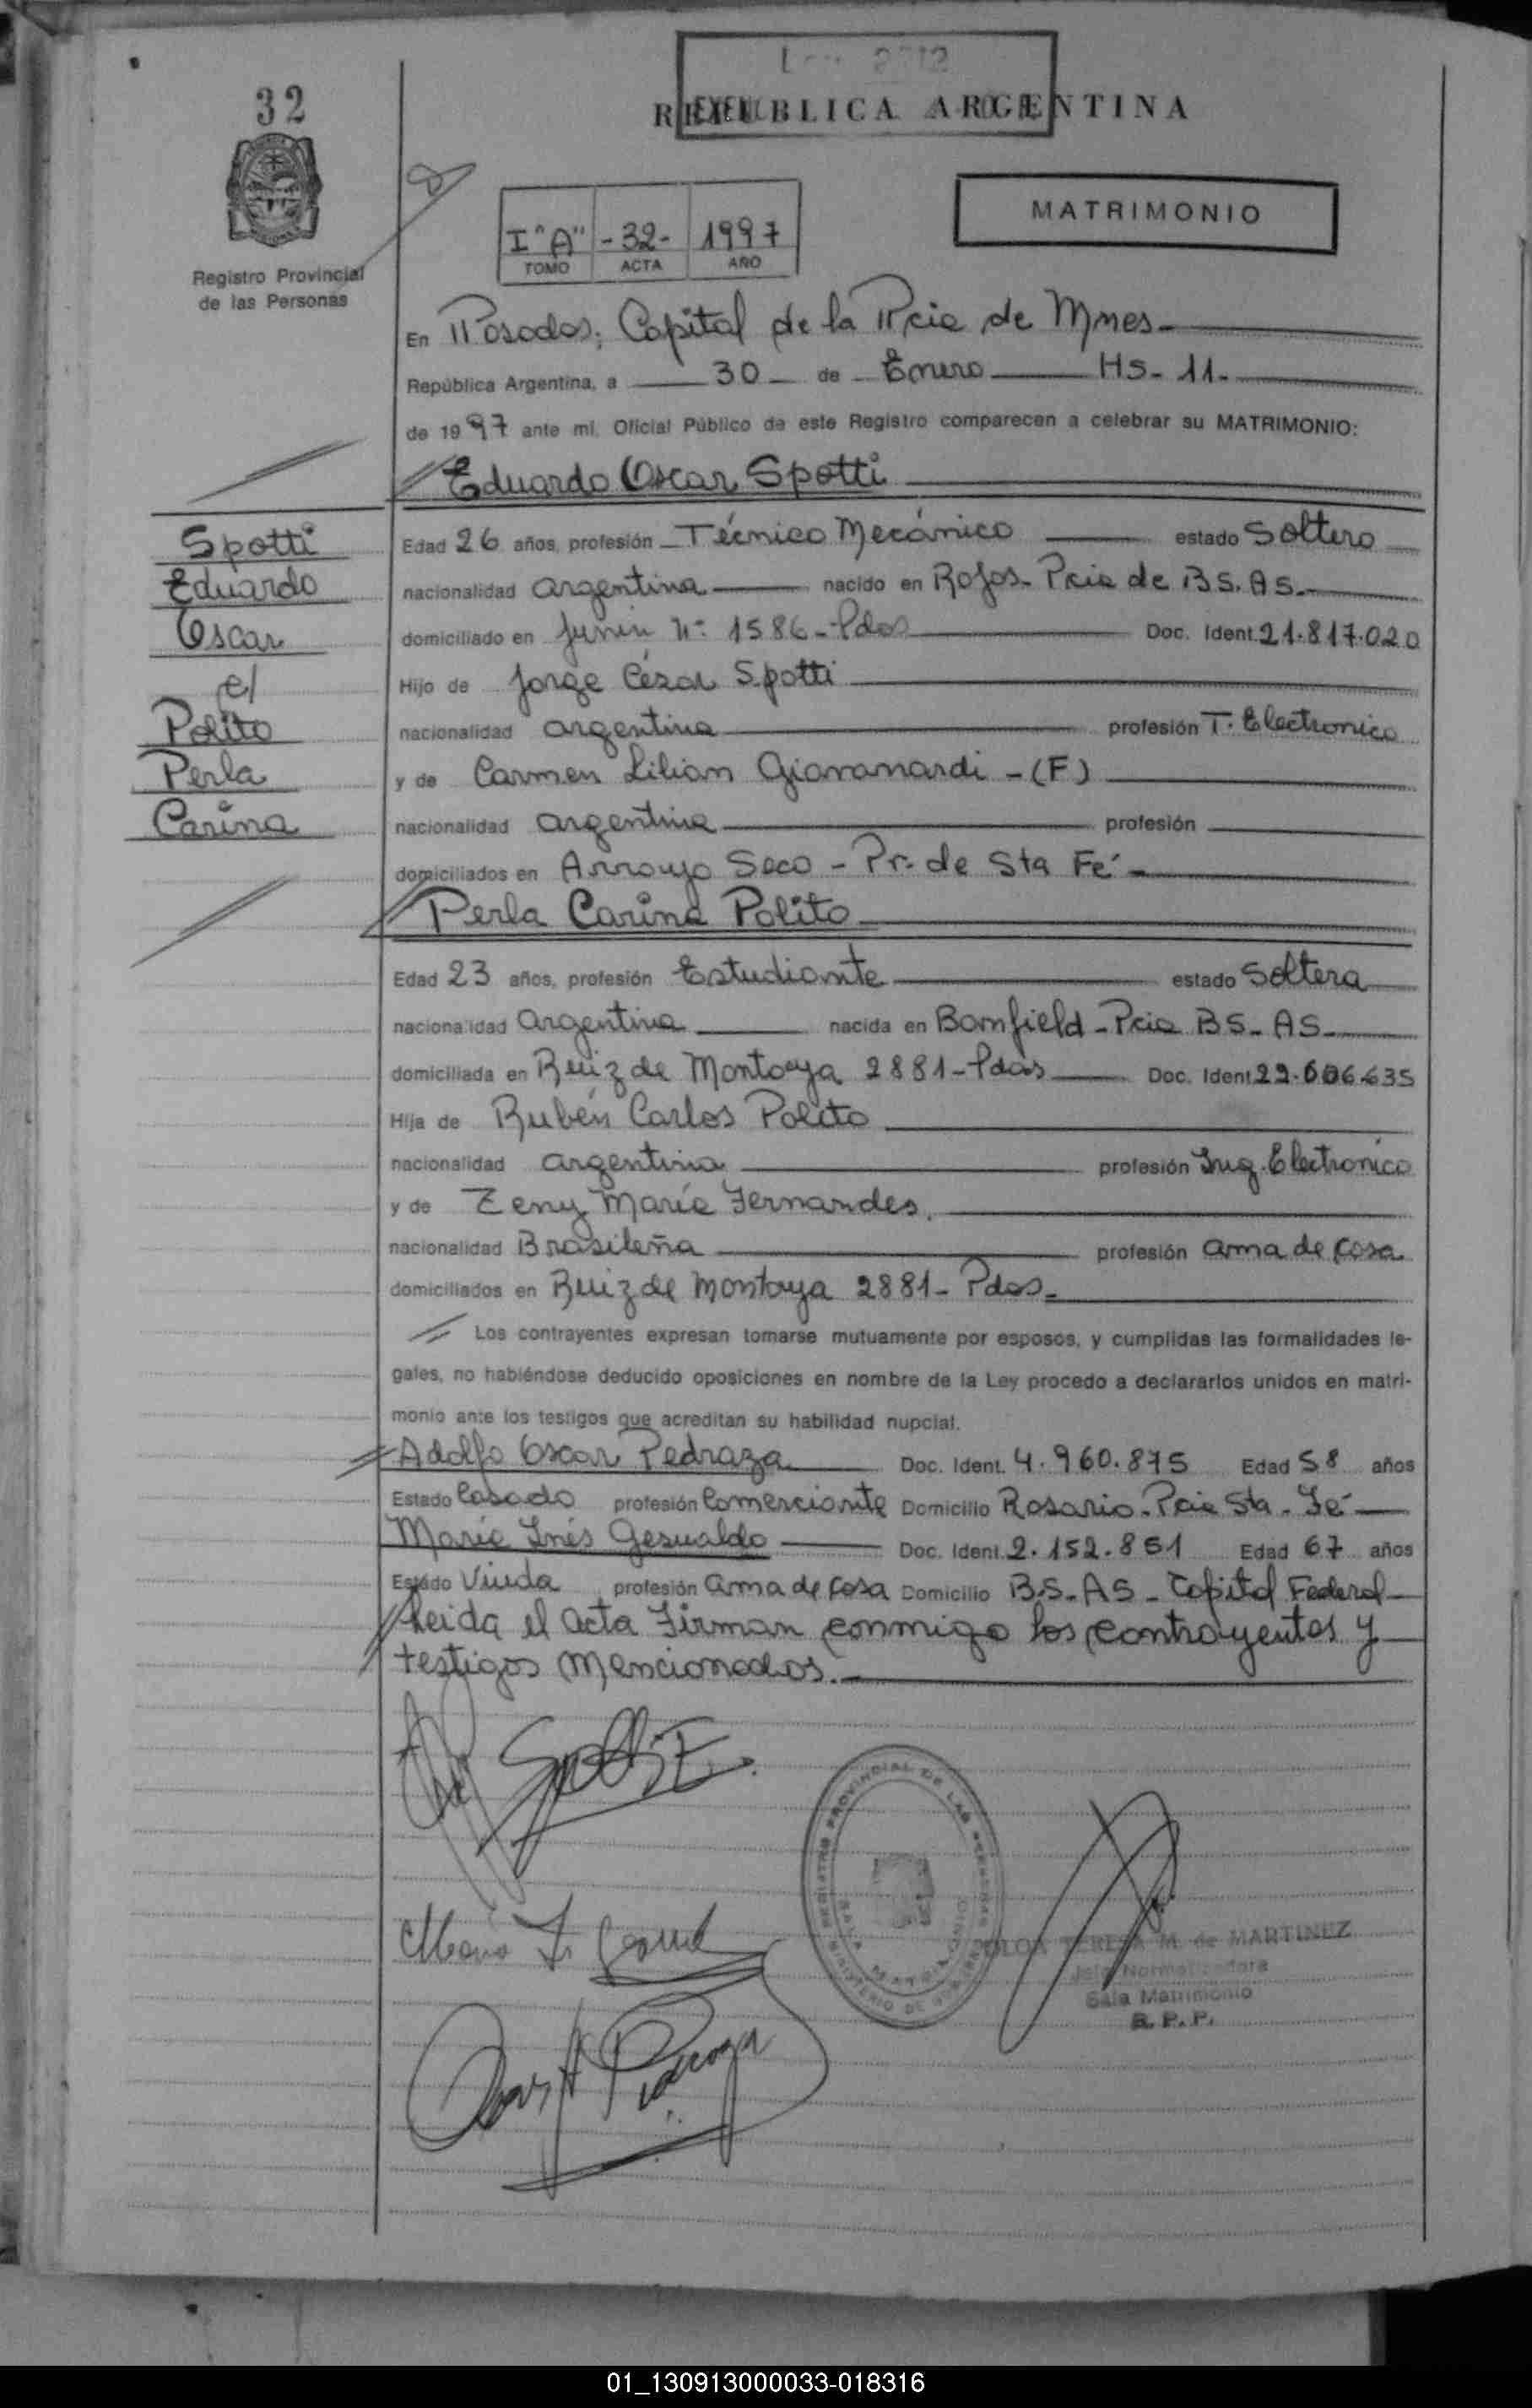 32
REPUBLICA ARGENTINA
MATRIMONIO
I "A" -32- 1997
TOMO ACTA AÑO
Registro Provincial
de las Personas
En Posadas; Capital de la Pcia de Mnes-
República Argentina, a 30 - de Enero HS- 11-
de 1997 ante mí, Oficial Público de este Registro comparecen a celebrar su MATRIMONIO:
Eduardo Oscar Spotti
Spotti
Eduardo
Oscar
c/
Polito
Perla
Carina
Edad 26 años, profesión Técnico Mecánico estado Soltero
nacionalidad argentina nacido en Rojas- Pcia de BS. AS.-
domiciliado en Junín Nº 1586-Pdas Doc. Ident. 21.817.020
Hijo de Jorge César Spotti
nacionalidad argentina profesión T. Electronico
y de Carmen Lilian - (F)
nacionalidad argentina profesión
domiciliados en Arroyo Seco - Pr. de Sta Fé -
Perla Carina Polito
Edad 23 años, profesión Estudiante estado Soltera
nacionalidad Argentina nacida en Banfield - Pcia BS- AS-
domiciliada en Ruiz de Montoya 2881-Pdas Doc. Ident.
Hija de Rubén Carlos Polito
nacionalidad argentina profesión Ing. Electronico
y de Zeny María Fernandes.
nacionalidad Brasileña profesión ama de casa
domiciliados en Ruiz de Montoya 2881- Pdas-
Los contrayentes expresan tomarse mutuamente por esposos, y cumplidas las formalidades le-
gales, no habiéndose deducido oposiciones en nombre de la Ley procedo a declararlos unidos en matri-
monio ante los testigos que acreditan su habilidad nupcial.
Adolfo Oscar Pedraza Doc. Ident. 4.960.875 Edad 58 años
Estado Casado profesión Comerciante Domicilio Rosario- Pcia Sta- Fé -
María Inés Gesualdo Doc. Ident. 2.152.851 Edad 67 años
Estado Viuda profesión ama de casa Domicilio BS-AS - Capital Federal
Leida el acta Firman conmigo los contrayentes y
testigos mencionados.-
REGISTRO PROVINCIAL DE LAS PERSONAS
TERESA M. de MARTINEZ
Sala Matrimonio
R. P. P.
01_130913000033-018316